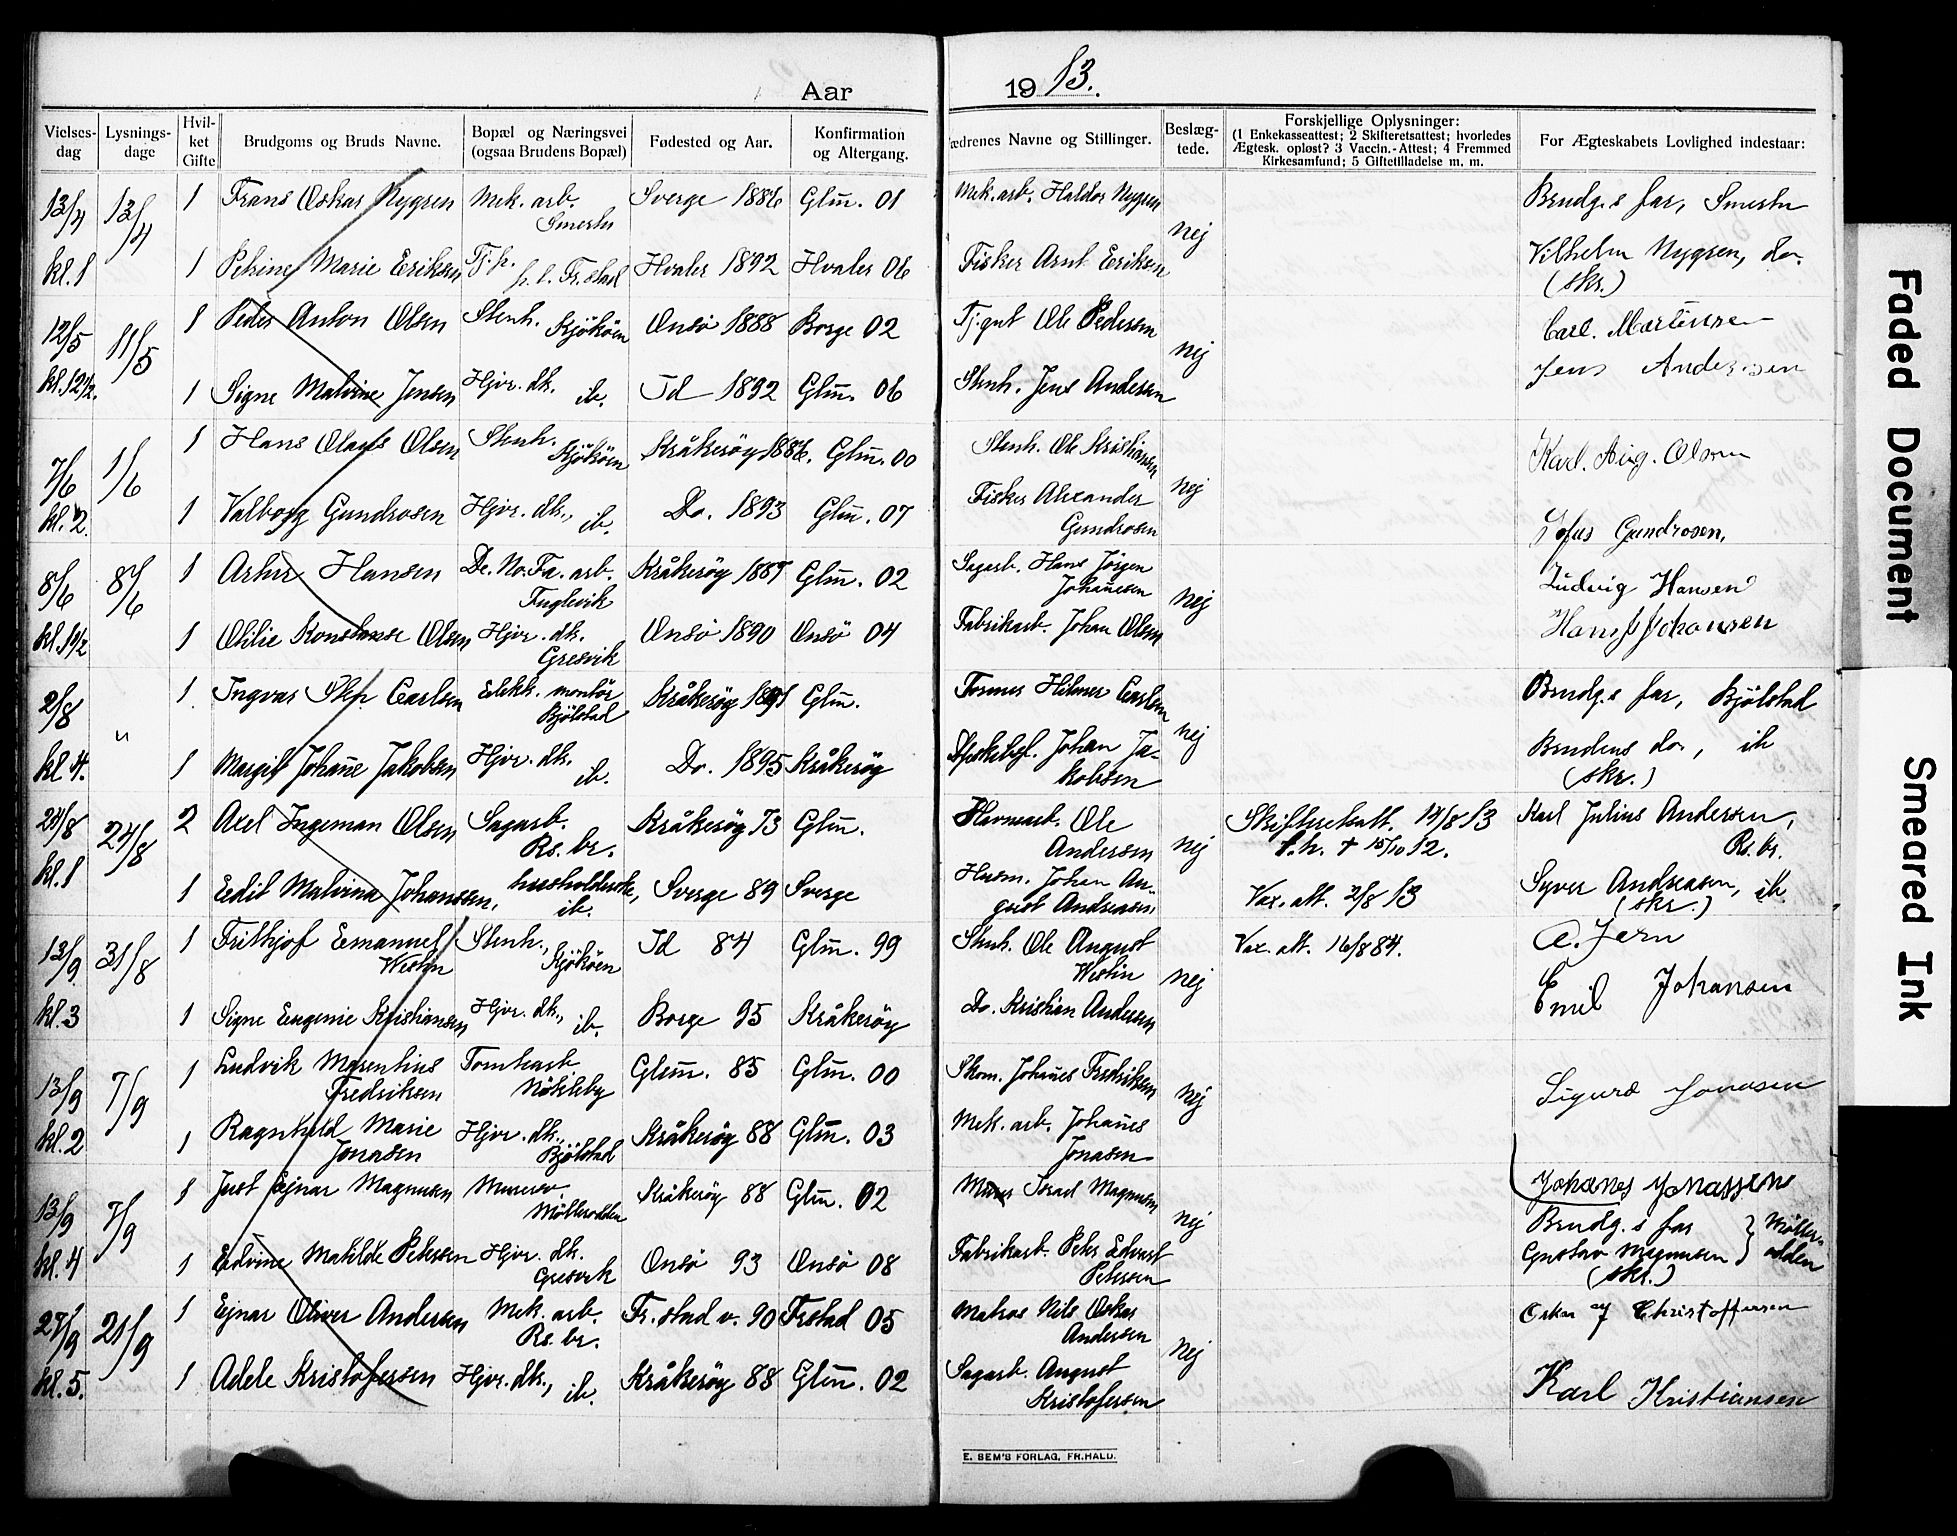 Aar 1913.
Vielses-dag Lysnings-dage Hvil-ket Gifte Brudgoms og Bruds Navne. Bopæl og Næringsvei (ogsaa Brudens Bopæl) Fødested og Aar. Konfirmation og Altergang. Fædrenes Navne og Stillinger. Beslæg-tede. Forskjellige Oplysninger: (1 Enkekasseattest; 2 Skifteretsattest; hvorledes Ægtesk. opløst? 3 Vaccin.-Attest; 4 Fremmed Kirkesamfund; 5 Giftetilladelse m. m. For Ægteskabets Lovlighed indestaar:
13/4 13/4 1 Frans Oskar Nygren Mek. arb. Smertu Sverge 1886 Glm. 01 Mek. arb. Haldor Nygren nej Brudg.s far, Smertu
kl. 1 1 Petrine Marie Eriksen Tj.p. p. t. Fr.stad Hvaler 1892 Hvaler 06 Fisker Arnt Eriksen Vilhelm Nygren, do. (skr.)
12/5 11/5 1 Peder Anton Olsen Stenh. Kjökøen Onsö 1888 Borge 02 Tj.gut Ole Pedersen nej Carl. Martinsen
kl. 12 1/2. 1 Signe Malvine Jensen Hjvr. dk. ib. Id 1892 Glm. 06 Stenh. Jens Andersen Jens Andersen
7/6 1/6 1 Hans Olaus Olsen Stenh. Kjökøen Kråkeröy 1886. Glm. 00 Stenh. Ole Kristiansen nej Karl. Aug. Olsen
kl. 2. 1 Valborg Gundrosen Hjvr. dk., ib. Do. 1893 Glm. 07 Fisker Alexander Gundrosen Jofus Gundrosen,
8/6 8/6 1 Artur Hansen De. No. Fa. arb. Fuglevik Kråkeröy 1887 Glm. 02 Sagarb. Hans Jörgen Johannesen nej Ludvig Hansen
kl. 1 1/2 1 Otilie Konstanse Olsen Hjvr. dk. Gresvik Onsö 1890 Onsö 04 Fabrikarb. Johan Olsen Hans J Johansen
2/8 " 1 Ingvar Carlsen Elekt. montör Bjölstad Kråkeröy 1891 Glm. Tormes Hilmer Carlsen nej Brudg.s far, Bjölstad
kl 4. 1 Margit Johanne Jakobsen Hjvr. dk. ib. Do. 1895 Kråkeröy Johan Ja-kobsen Brudens do., ib (skr.)
24/8 24/8 2 Axel Ingeman Olsen Sagarb. Rs. br. Kråkeröy 73 Glm. Havnearb. Ole Andersen nej Skifteretsatt. 14/8 13 f. h. + 15/10 12. Karl Julius Andersen, Rs. br.
kl. 1 1 Eedit Malvina Johansen, husholderske, ib. Sverge 89 Sverge Husm. Johan Au-gust Andreasen Vax. att. 2/8 13 Syver Andreasen, ib (skr.)
13/9. 31/8 1 Fritthjof Eemanuel Westin Stenh., Kjökøen Id 84 Glm. 99 Stenh. Ole August Westin nej Vax. att. 16/8 84. A. Jern
kl. 3 1 Signe Eugenie Kristiansen Hjvr. dk., ib. Borge 95 Kråkeröy Do. Kristian Andersen Emil Johansen
13/9 7/9 1 Ludvik Marentius Fredriksen Tomtearb. Nökleby Glem. 85 Glm. 00 Skom. Johannes Fredriksen nej Sigurd Jonasen
kl. 2 1 Ragnhild Marie Jonasen Hjvr. dk., Bjölstad Kråkeröy 88 Glm. 03 Mek. arb. Johannes Jonasen Johanes Jonassen
13/9 7/9 1 Just Ejnar Magnusen Murer Möllerodden Kråkeröy 88 Glm. 02 Murer Israel Magnusen nej Brudg.s far } Möller-
kl. 4 1 Edvine Matilde Petersen Hjvr. dk. Gresvik Onsö 93 Onsö 08 Fabrikarb. Peter Edvart Petersen Gustav Magnusen } odden (skr.)
27/9 21/9 1 Ejnar Oliver Andersen Mek. arb. Rs. br. Fr.stad v. 90 Frstad 05 Matros Nils Oskar Andersen nej Oskar J Christoffersen
kl. 5. 1 Adele Kristofersen Hjvr. dk., ib. Kråkeröy 88 Glm. 02 Sagarb. August Kristofersen Karl Kristiansen
E. SEM'S FORLAG, FR.HALD.
Faded Document
Smeared Ink